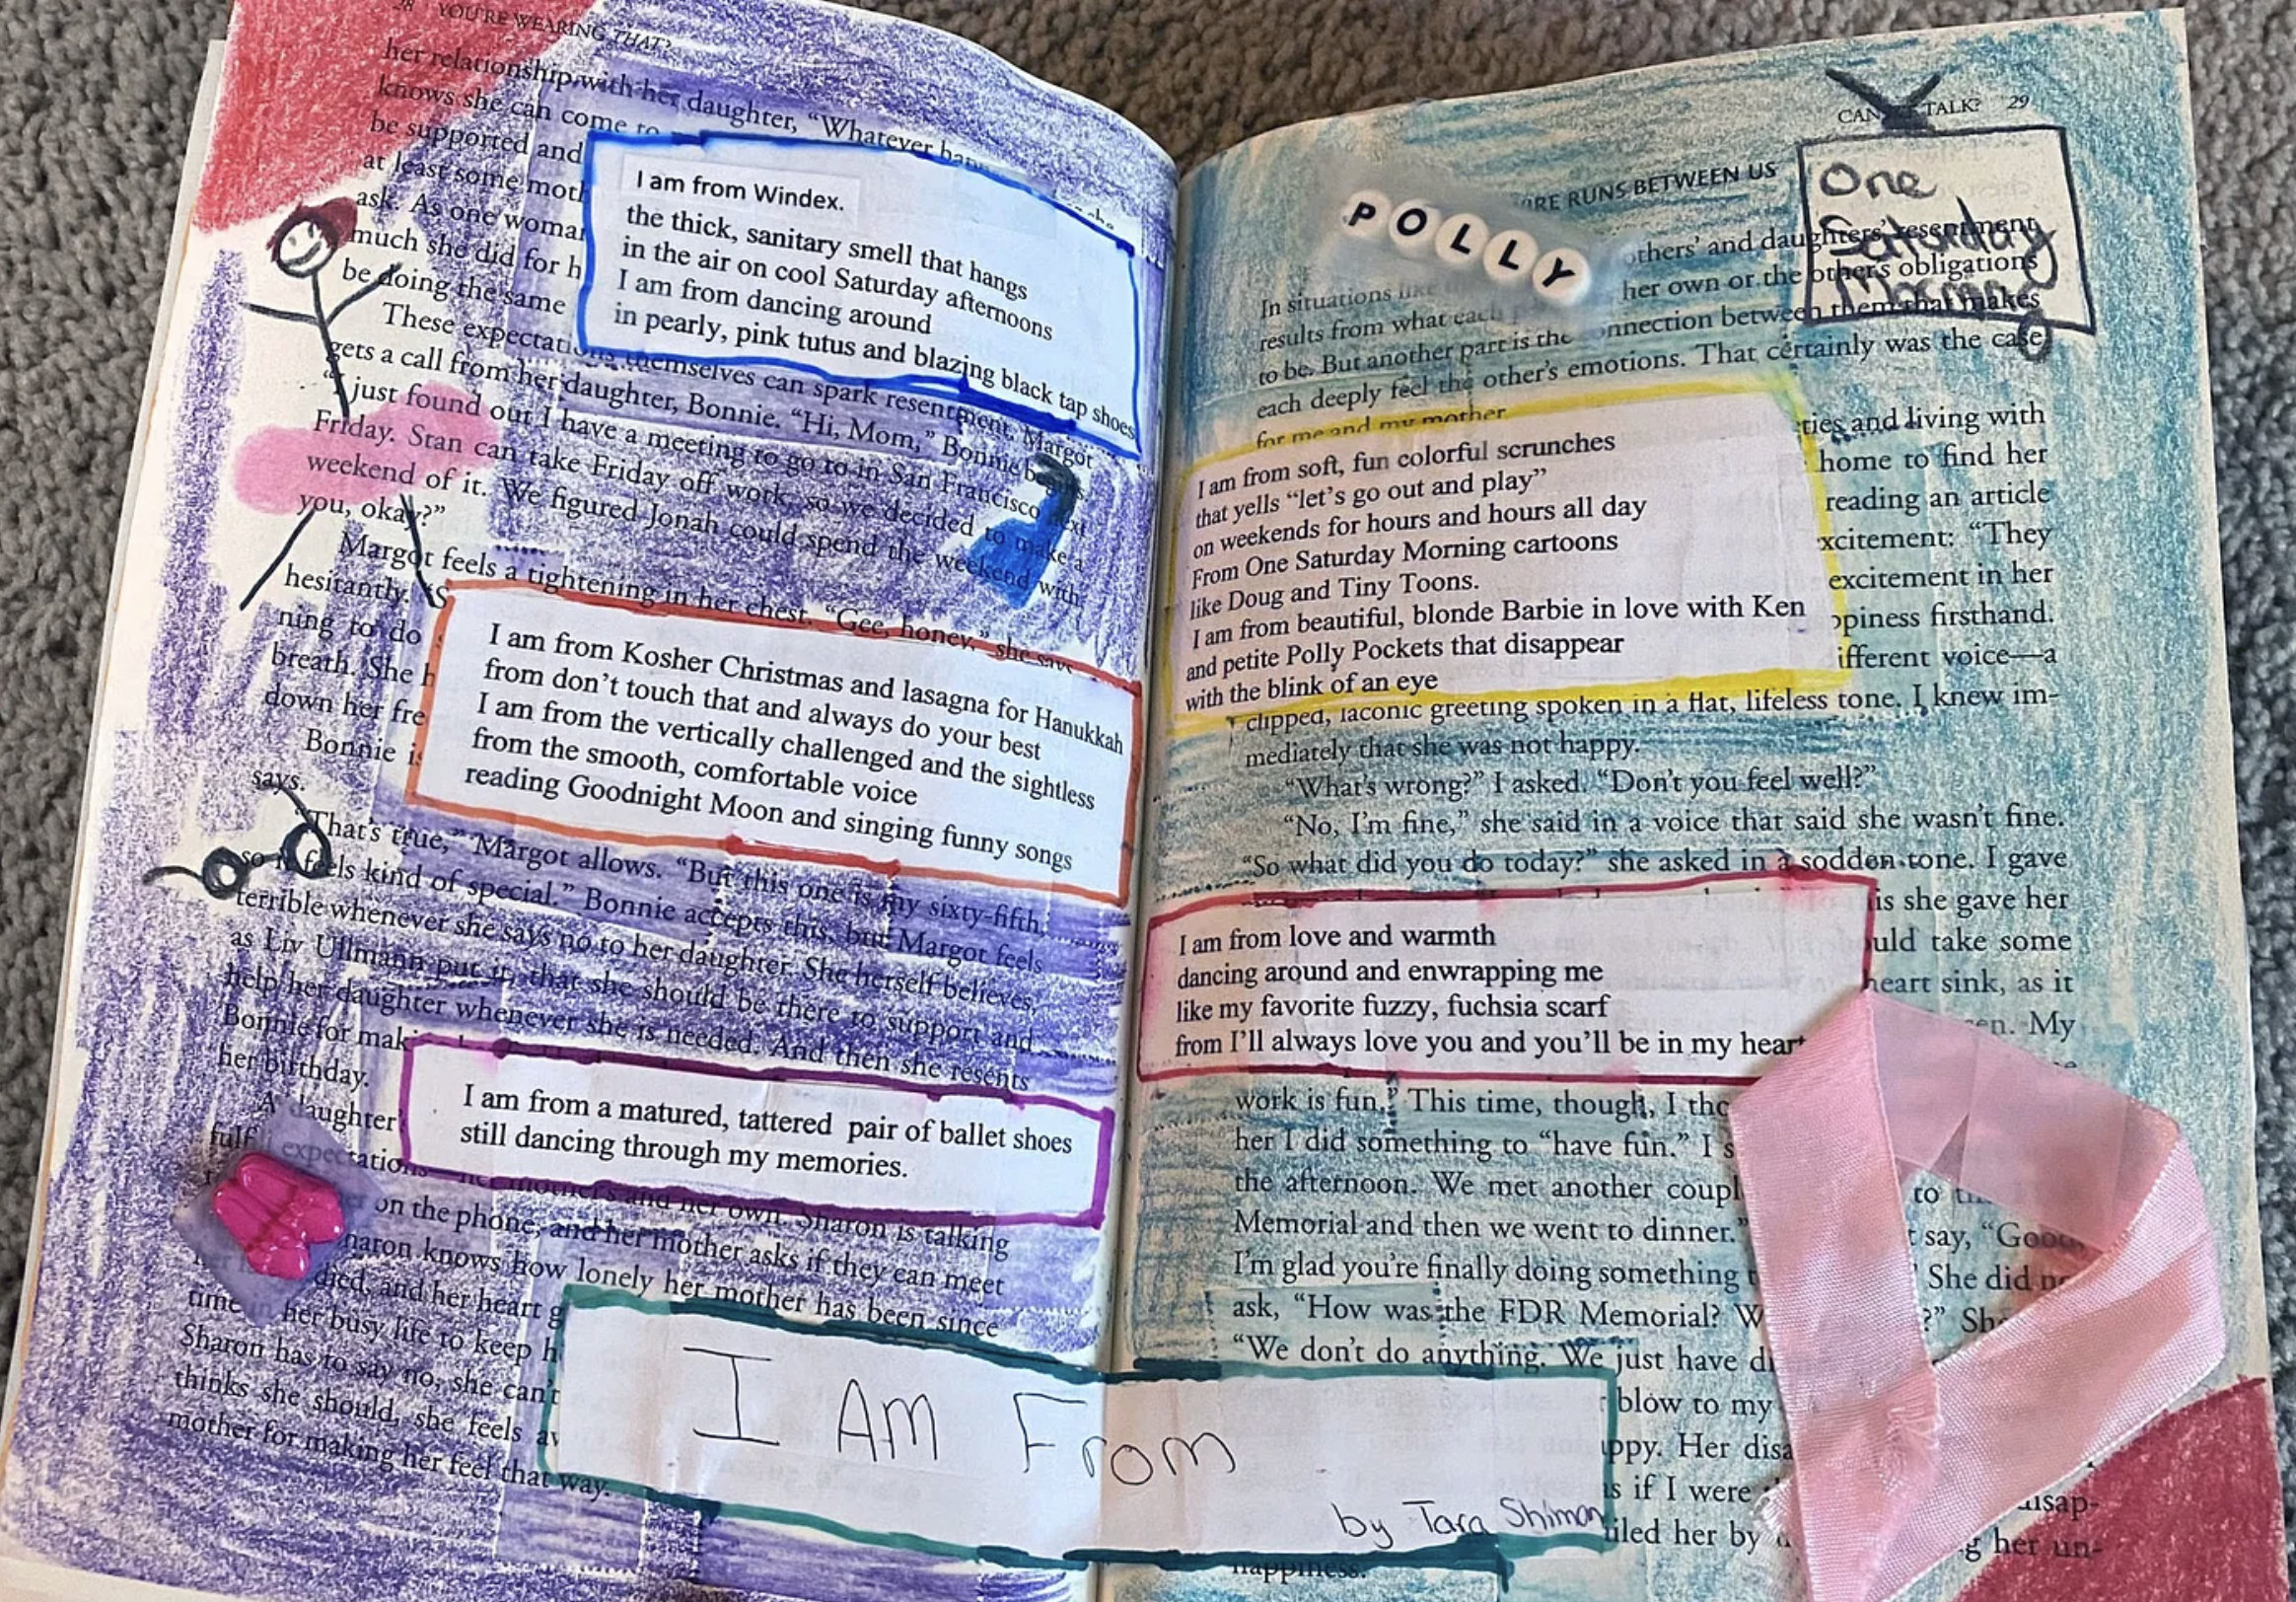 28 YOU'RE WEARING THAT?
her relationship with her daughter, "Whatever
knows she can come to
be supported and
at least some moth
ask. As one woman
much she did for h
be doing the same
These expectations themselves can spark resentment. Margot
gets a call from her daughter, Bonnie. "Hi, Mom," Bonnie
"I just found out I have a meeting to go to in San Francisco next
Friday. Stan can take Friday off work, so we decided to make a
weekend of it. We figured Jonah could spend the weekend with
you, okay?"
Margot feels a tightening in her chest. "Gee, honey," she says
hesitantly. "S
ning to do
breath. She h
down her fre
Bonnie is
says.
"That's true," Margot allows. "But this one is my sixty-fifth,
so it feels kind of special." Bonnie accepts this, but Margot feels
terrible whenever she says no to her daughter. She herself believes,
as Liv Ullmann put it, that she should be there to support and
help her daughter whenever she is needed. And then she resents
Bonnie for mak
her birthday.
A daughter'
fulf expectations her mother's and her own. Sharon is talking
on the phone, and her mother asks if they can meet
haron knows how lonely her mother has been since
died, and her heart g
time in her busy life to keep h
Sharon has to say no, she can't
thinks she should, she feels aw
mother for making her feel that way.
I am from Windex.
the thick, sanitary smell that hangs
in the air on cool Saturday afternoons
I am from dancing around
in pearly, pink tutus and blazing black tap shoes
I am from Kosher Christmas and lasagna for Hanukkah
from don't touch that and always do your best
I am from the vertically challenged and the sightless
from the smooth, comfortable voice
reading Goodnight Moon and singing funny songs
I am from a matured, tattered pair of ballet shoes
still dancing through my memories.
I AM From
by Tara Shiman
CAN TALK? 29
POLLY
One
Saturday
Morning
RE RUNS BETWEEN US
In situations like others' and daughters' resentment
results from what each her own or the other's obligations
to be. But another part is the connection between them that makes
each deeply feel the other's emotions. That certainly was the case
for me and my mother.
ties and living with
home to find her
reading an article
xcitement: "They
excitement in her
ppiness firsthand.
ifferent voice—a
clipped, laconic greeting spoken in a flat, lifeless tone. I knew im-
mediately that she was not happy.
"What's wrong?" I asked. "Don't you feel well?"
"No, I'm fine," she said in a voice that said she wasn't fine.
"So what did you do today?" she asked in a sodden tone. I gave
is she gave her
ould take some
heart sink, as it
en. My
work is fun." This time, though, I tho
her I did something to "have fun." I s
the afternoon. We met another coupl to
Memorial and then we went to dinner." t say, "Good,
I'm glad you're finally doing something She did
ask, "How was the FDR Memorial? W ?" She
"We don't do anything. We just have di
blow to my
ppy. Her disa
s if I were disap-
iled her by g her un-
happiness.
I am from soft, fun colorful scrunches
that yells "let's go out and play"
on weekends for hours and hours all day
From One Saturday Morning cartoons
like Doug and Tiny Toons.
I am from beautiful, blonde Barbie in love with Ken
and petite Polly Pockets that disappear
with the blink of an eye
I am from love and warmth
dancing around and enwrapping me
like my favorite fuzzy, fuchsia scarf
from I'll always love you and you'll be in my heart